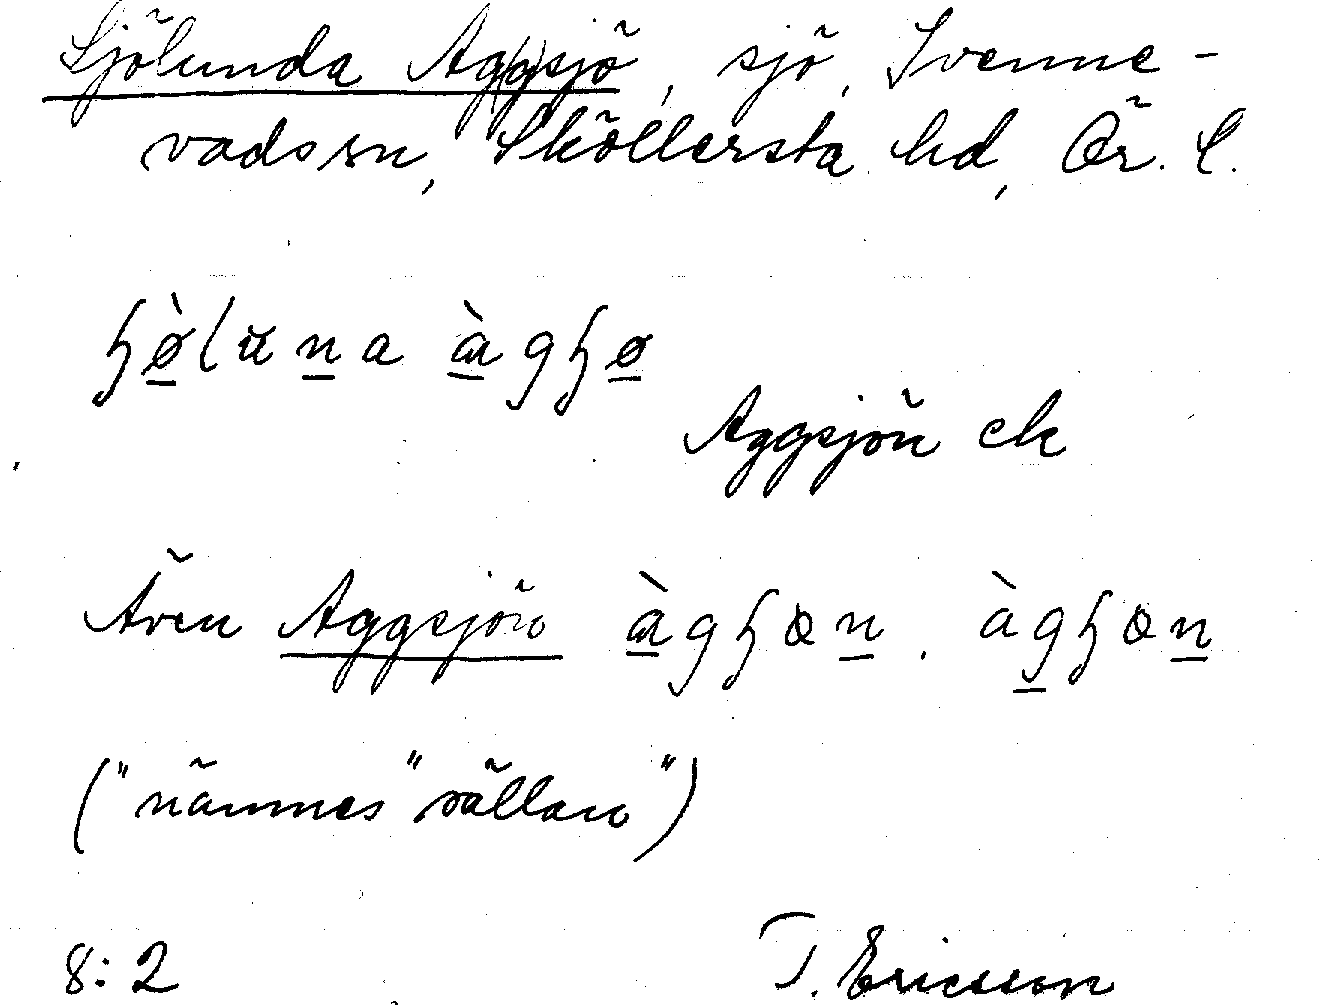 Sjölunda Ag(g)sjö, sjö, Svenne-
vads sn, Sköllersta hd, Ör. l.
ɧø̀lŭna àgɧø
Aggsjön ek
Även Aggsjön àgɧøn. àgɧøn
("nämnes" sällan")
8:2 T. Ericsson